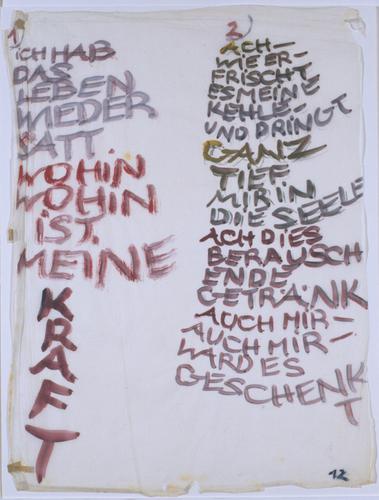 1)
ICH HAB
DAS
LEBEN
WIEDER
SATT
WOHIN
WOHIN
IST
MEINE
KRAFT
2)
ACH—
WIE ER-
FRISCHT
ES MEINE
KEHLE-
UND DRINGT
GANZ
TIEF
MIR IN
DIE SEELE
ACH DIES
BERAUSCH
ENDE
GETRÄNK
AUCH MIR—
AUCH MIR—
WARD ES
GESCHENK
T
12